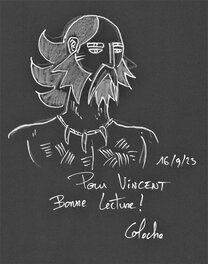 16/9/23
Pour VINCENT
Bonne Lecture !